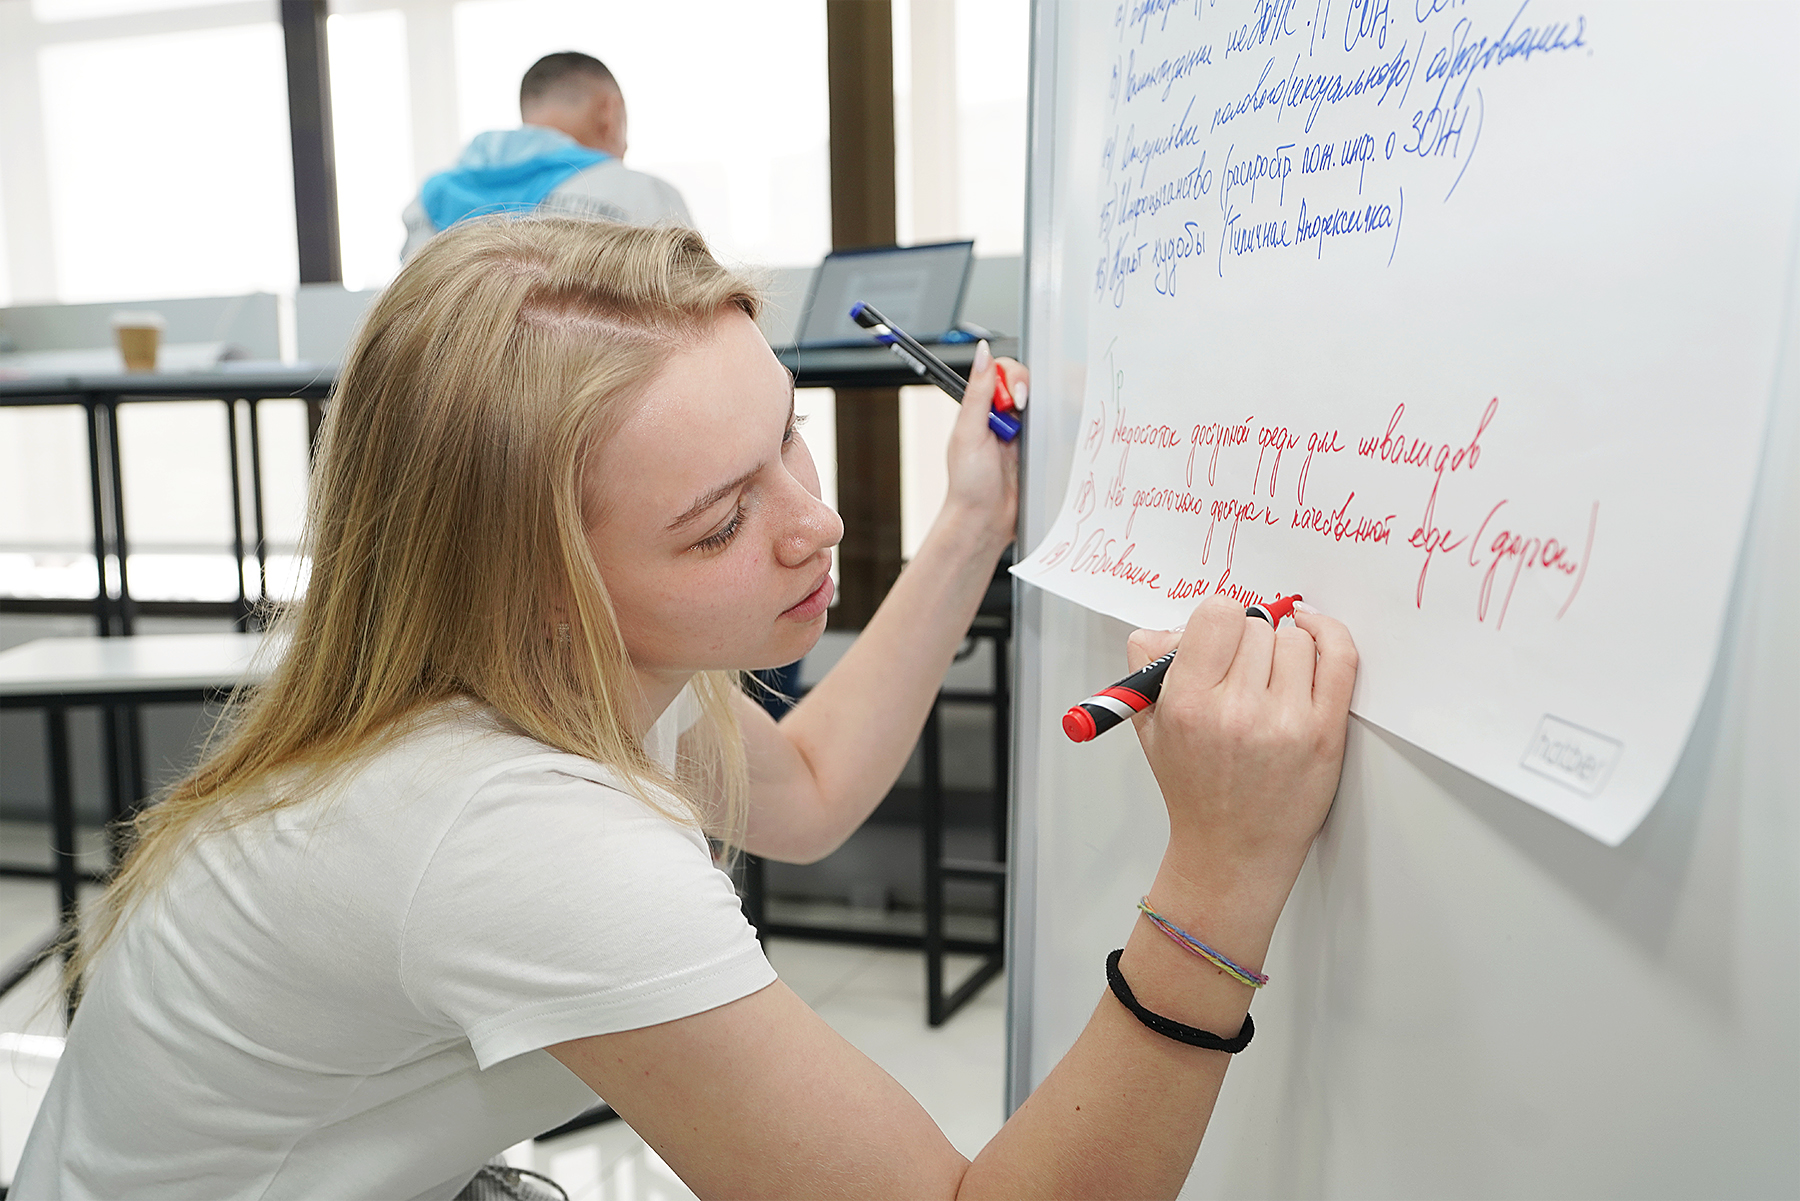 не ЗОЖ
14) Отсутствие полового/сексуального/ образования.
15) Инфоцыганство (распростр. лож. инф. о ЗОЖ)
16) Культ худобы (Типичная Анорексичка)
Тр
17) Недостаток доступной среды для инвалидов
18) Нет достаточного доступа к качественной еде (дорого)
19) Отбивание мотивации
hatber